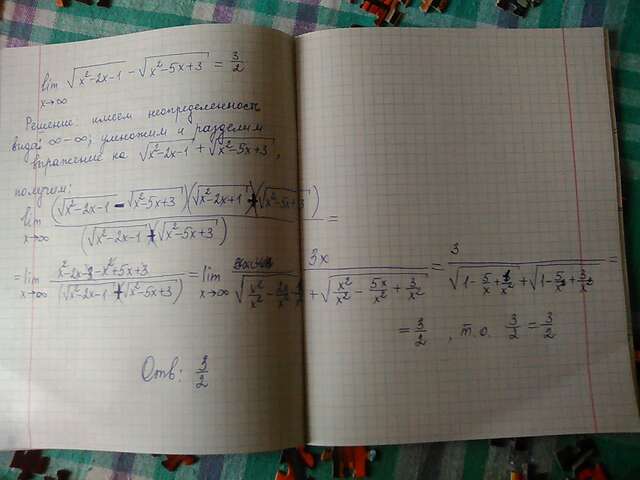 lim x→∞ √(x²-2x-1) - √(x²-5x+3) = 3/2
Решение: имеем неопределенность
вида ∞-∞; умножим и разделим
выражение на √(x²-2x-1) + √(x²-5x+3),
получим:
lim x→∞ (√(x²-2x-1) - √(x²-5x+3))(√(x²-2x+1) + √(x²-5x+3)) / (√(x²-2x-1) + √(x²-5x+3)) =
= lim x→∞ (x²-2x-1-x²+5x+3) / (√(x²-2x-1) + √(x²-5x+3)) = lim x→∞ 3x / (√(x²/x² - 2x/x² - 1/x²) + √(x²/x² - 5x/x² + 3/x²)) = 3 / (√(1 - 5/x + 1/x²) + √(1 - 5/x + 3/x²)) =
= 3/2, т.о. 3/2 = 3/2
Отв: 3/2